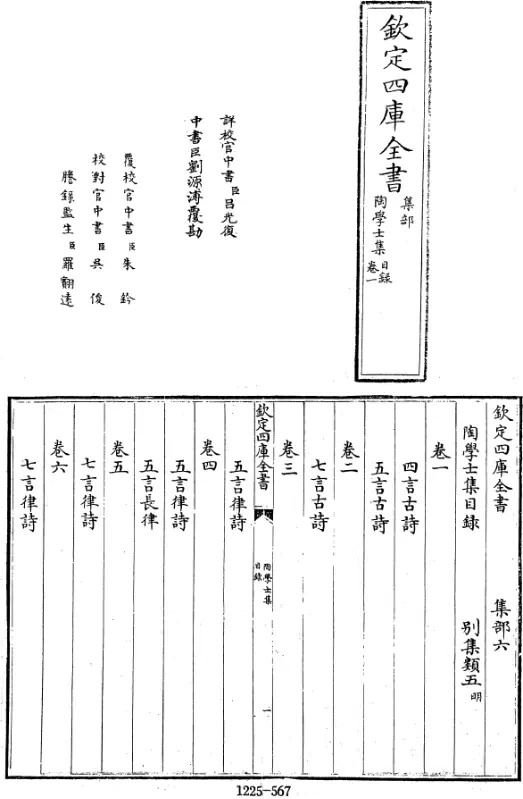 欽定四庫全書
集部
陶學士集
目錄
卷一
詳校官中書臣呂光復
中書臣劉源溥覆勘
覆校官中書臣朱鈐
校對官中書臣吳俊
謄錄監生臣羅翻遠
欽定四庫全書 集部六
陶學士集目錄 別集類五明
卷一
四言古詩
五言古詩
卷二
七言古詩
卷三
欽定四庫全書
陶學士集
目錄
一
五言律詩
卷四
五言律詩
五言長律
卷五
七言律詩
卷六
七言律詩
1225-567